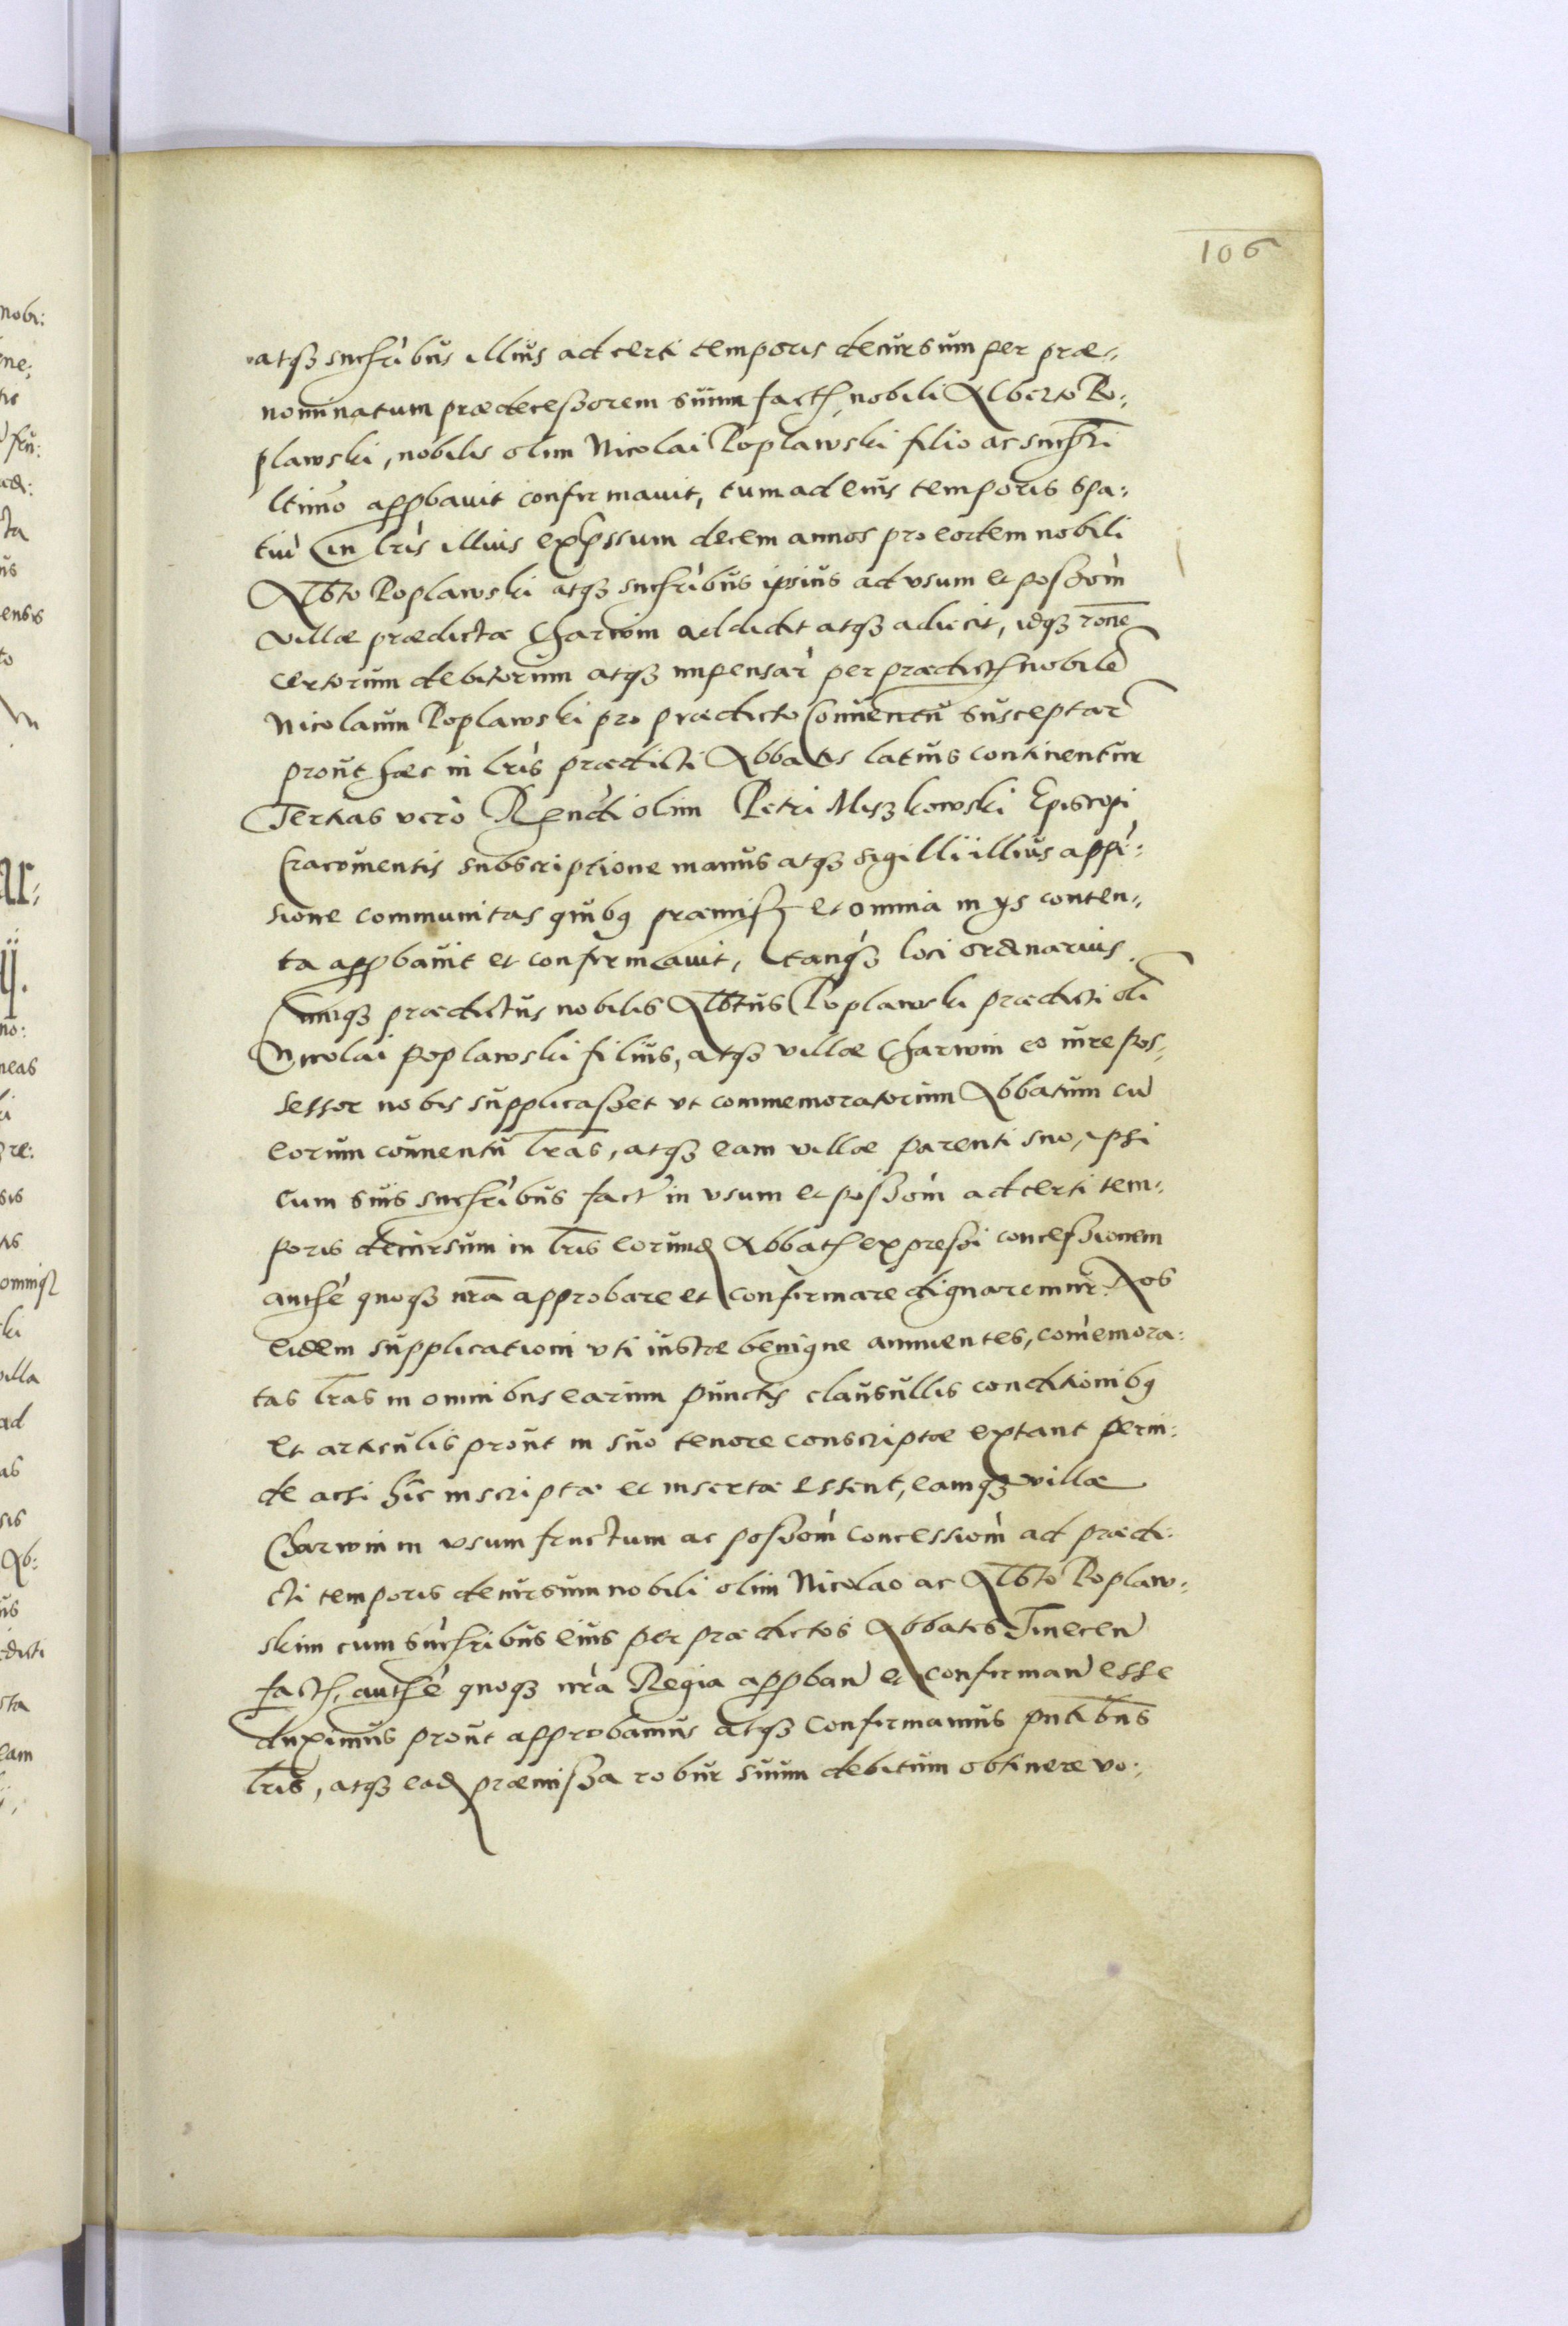 106
atqȝ sucſribus illius ad certi temporis decursum per præ:
nominatum prædeceſsorem suum fact, nobili Alberto Po:
plawski, nobilis olim Nicolai Poplawski filio ac sucſri
ltimo appbavit confirmavit, tum ad eius temporis spa:
tiũ in lr̃is illius expssum decem annos pro eodem nobili
Albto Poplawski atqȝ sucſribus ipsius ad vsum et poſsom̃
villæ prædictæ Charwin addidit atqȝ adiecit, idqȝ rone
certorum debitorum atqȝ impensar per prædict nobilẽ
Nicolaum Poplawski pro prædicto Conuentu susceptar
prout hæc in lr̃is prædicti Abbatis latius continentur
Tertias verò Rẽndi olim Petri Miszkowski Episcopi
Cracouientis subscriptione manus atqȝ sigilli illius appr̃:
sione communitas quibȝ præmiſs et omnia in ys conten:
ta appbavit et confirmavit, tanqȝ loci ordinarius.
Cumqȝ prædictus nobilis Albtus Poplawski prædicti oli
Nicolai Poplawski filius, atqȝ villæ Charwin eo iure pos:
sessor nobis supplicaſset vt commemoratorum Abbatum cũ
eorum conuentu lr̃as, atqȝ eam villæ parenti suo, ipsi
cum suis sucſribus fact in vsum et poſsom̃ ad certi tem:
poris decursum in lr̃is eorund Abbat expreſsi conceſsionem
authẽ quoqȝ nr̃a approbare et confirmare dignaremur. Nos
eidem supplicationi vti iustæ benigne annuentes, com̃emora:
tas lr̃as in omnibus earum punctis clausullis conditionibȝ
et articulis prout in suo tenore conscriptæ extant perin:
de acsi hic inscriptæ et insertæ essent, eamqȝ villæ
Charwin in vsum fructum ac poſsom̃ concessiom̃ ad prædi:
cti temporis decursum nobili olim Nicolao ac Albto Poplaw:
skim cum sucſribus eius per prædictos Abbates Tinecen̄
fact, authẽ quoqȝ nr̃a Regia appban̄ et confirman̄ esse
duximus prout approbamus atqȝ confirmamus pntibus
lr̃is, atqȝ ead præmiſsa robur suum debitum obtinere vo: